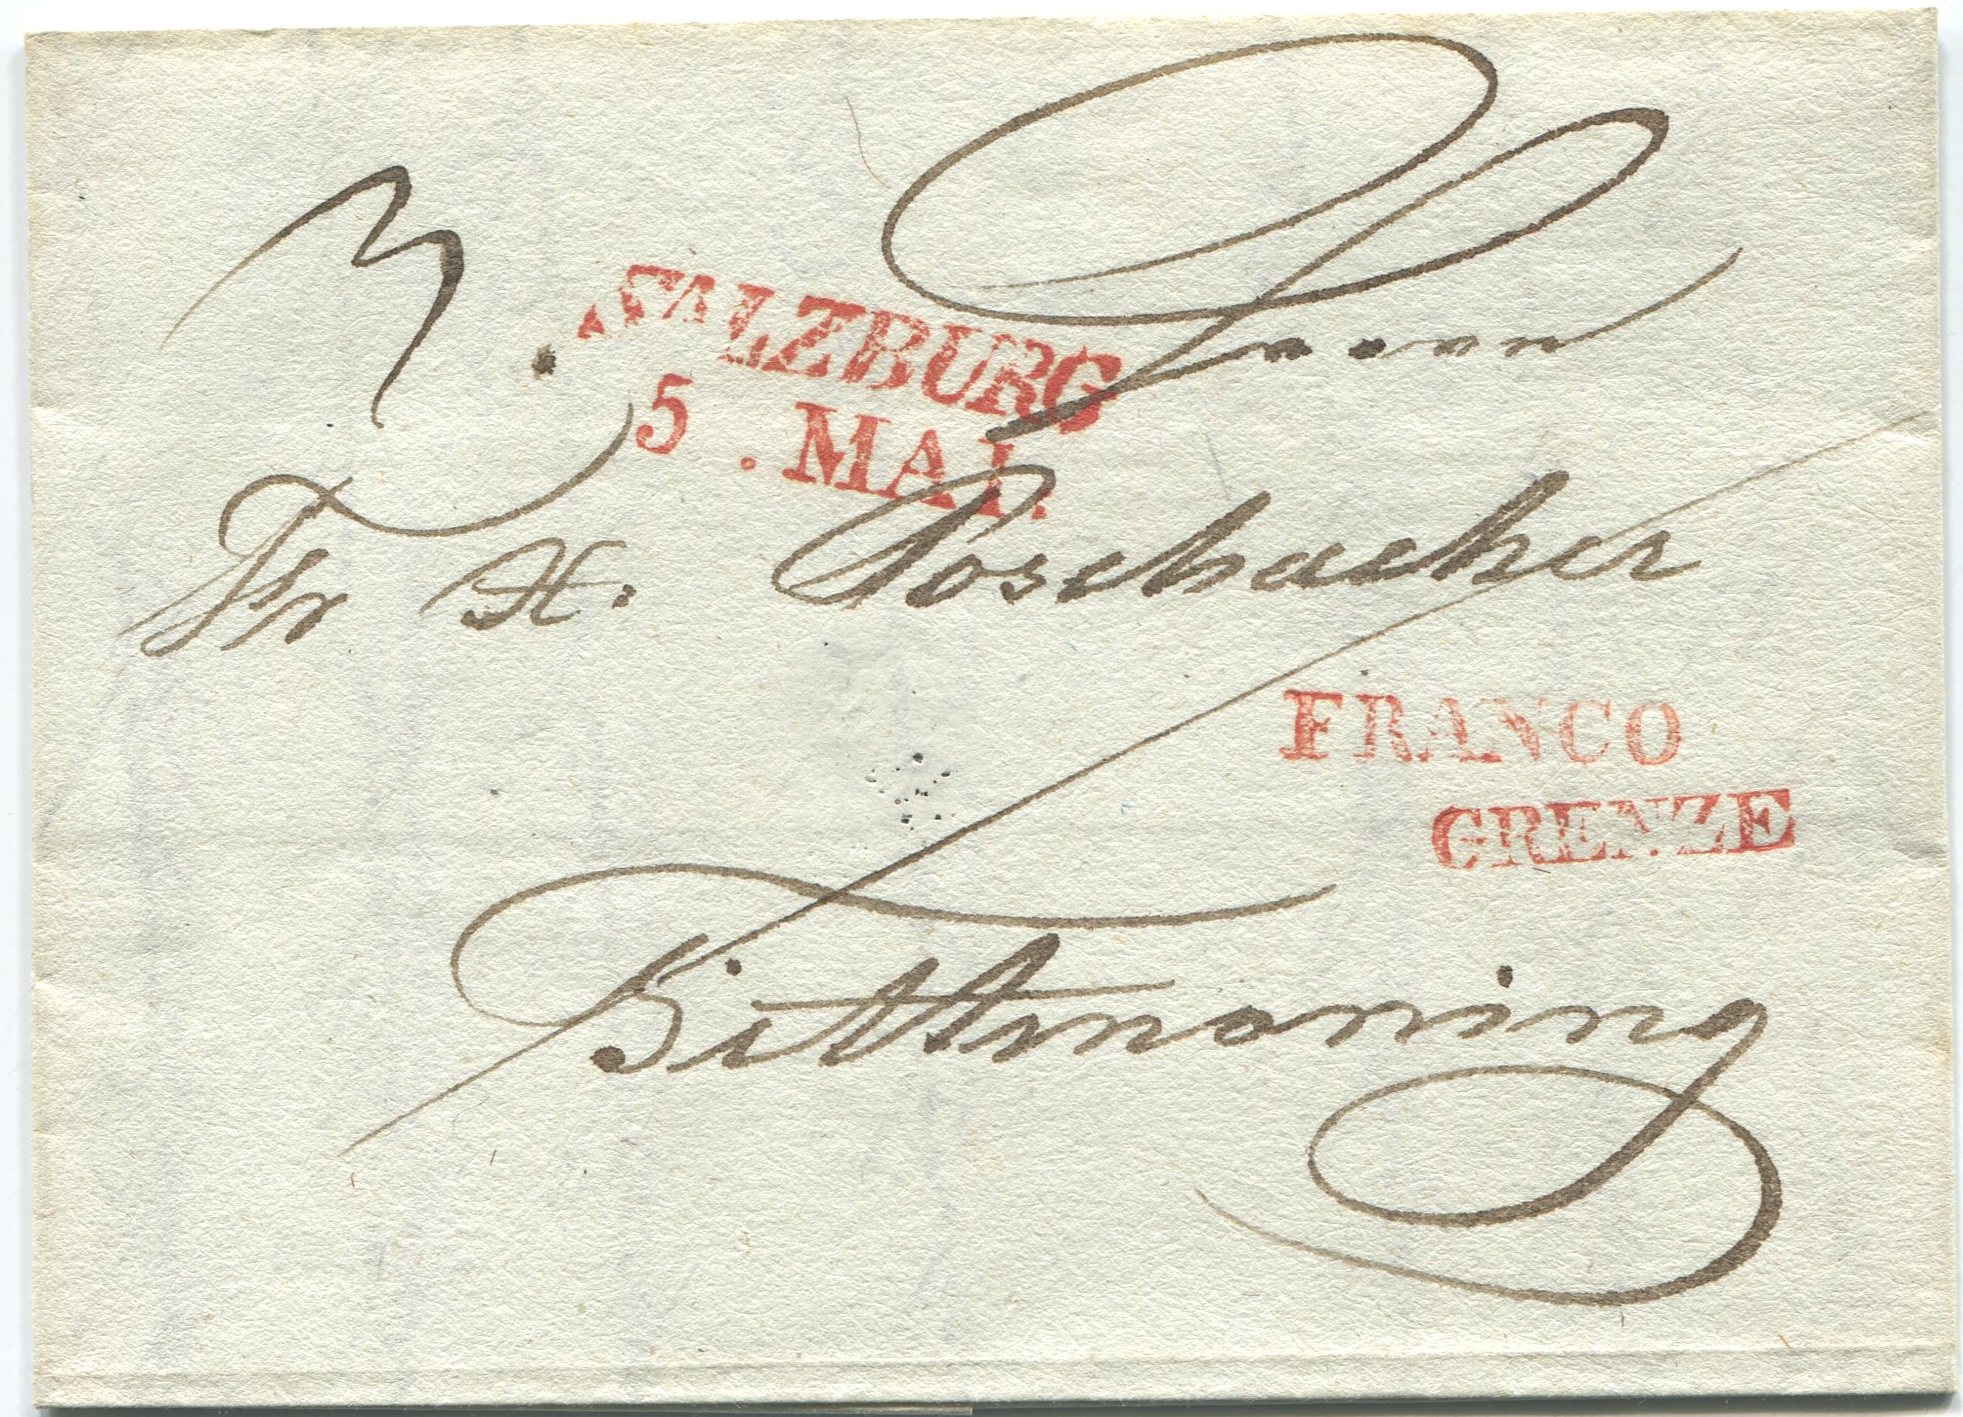 SALZBURG
5 . MAI.
Fr X. Poschacher
FRANCO
GRENZE
Tittmoning